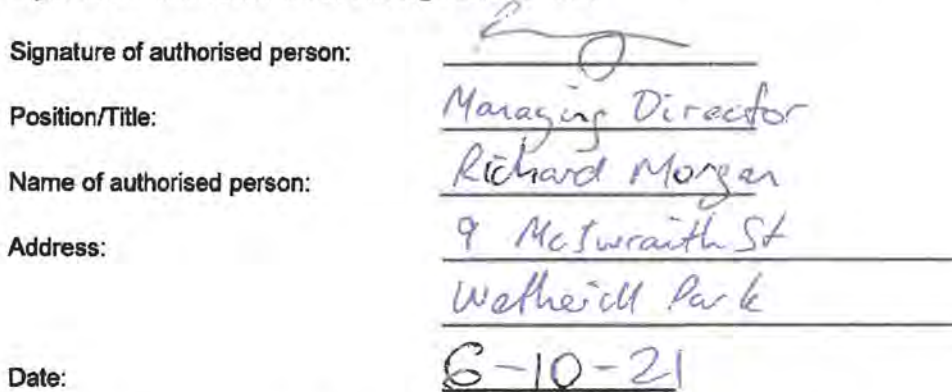 Signature of authorised person:
Position/Title: Managing Director
Name of authorised person: Richard Morgan
Address: 9 McIwraith St
Wetherill Park
Date: 6-10-21